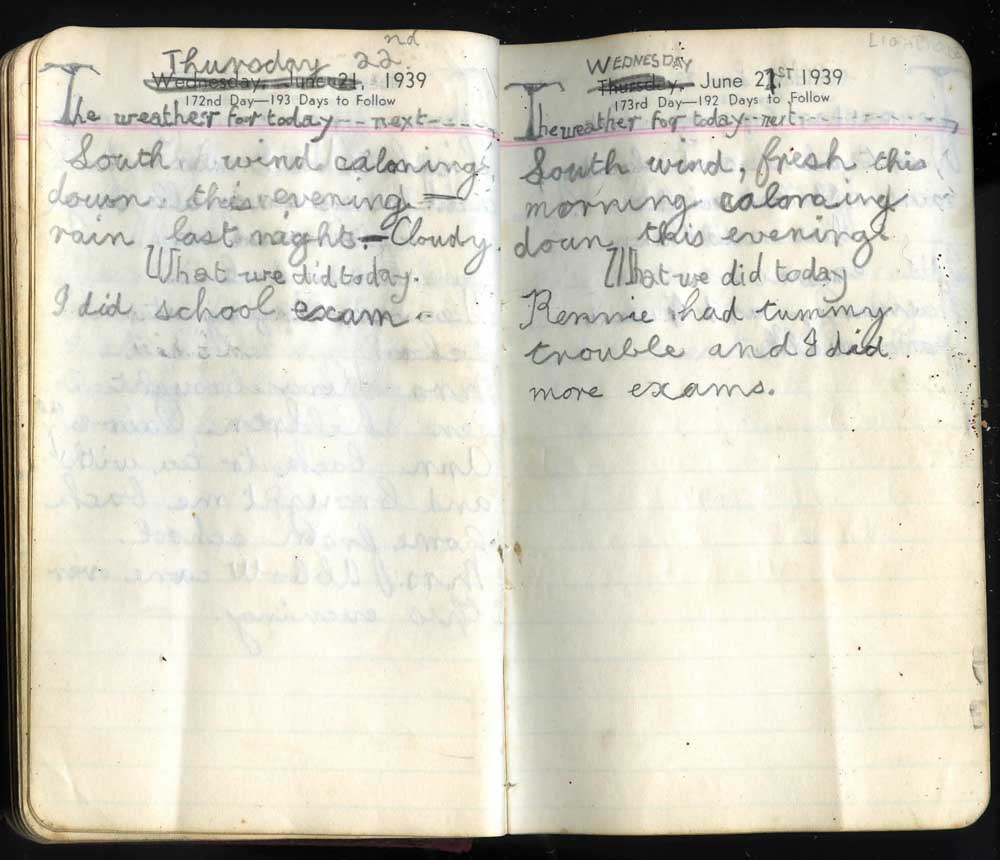 Thursday 22nd
Wednesday, June 21, 1939
172nd Day—193 Days to Follow
The weather for today--next----,
South wind caloning
down this evening —
rain last night.—Cloudy.
What we did today.
I did school exam.-
WEDNESDAY
Thursday, June 21ST 1939
173rd Day—192 Days to Follow
The weather for today--next
South wind, fresh this
morning caloning
down this evening.
What we did today
Rennie had tummy
trouble and I did
more exams.